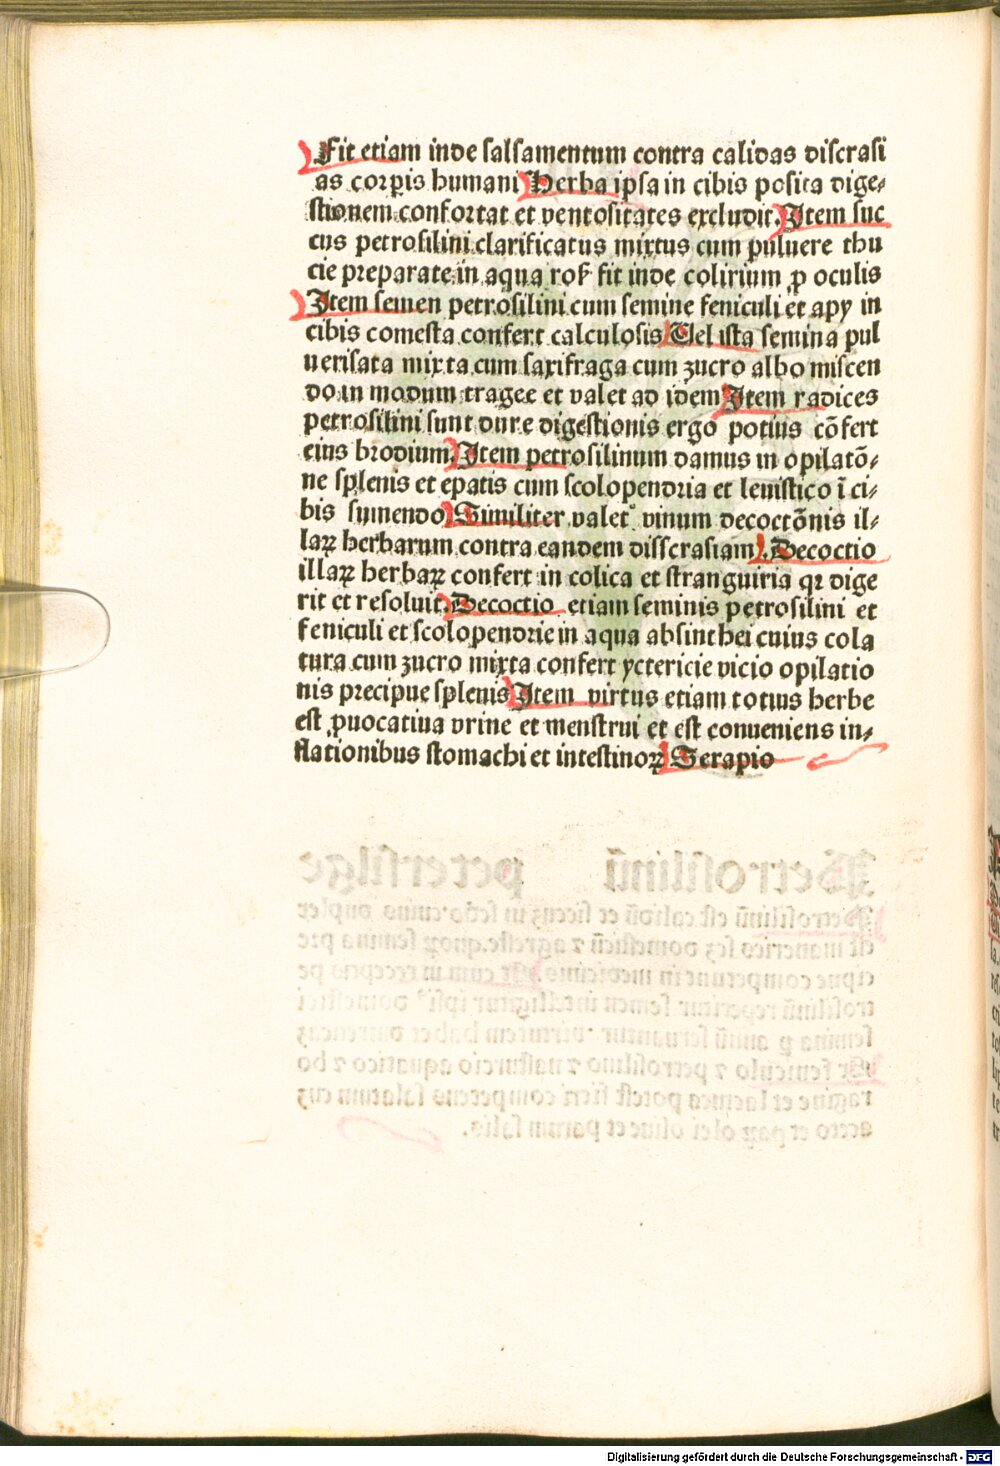 Fit etiam inde salsamentum contra calidas discrasi
as corꝑis humani Herba ipsa in cibis posita dige⸗
stionem confortat et ventositates excludit. Item suc
cus petrosilini clarificatus mixtus cum puluere thu
cie preparate in aqua roẞ fit inde colirium ꝓ oculis
Item semen petrosilini cum semine feniculi et apy in
cibis comesta confert calculosis Uel ista semina pul
uerisata mixta cum saxifraga cum zucro albo miscen
do in modum tragee et valet ad idem Item radices
petrosilini sunt dure digestionis ergo potius cōfert
eius brodium. Item petrosilinum damus in opilatō⸗
ne splenis et epatis cum scolopendria et leuistico ī ci⸗
bis sumendo Similiter valet vinum decoctōnis il⸗
laꝝ herbarum contra eandem disscrasiam. Decoctio
illaꝝ herbaꝝ confert in colica et stranguiria qꝛ dige
rit et resoluit. Decoctio etiam seminis petrosilini et
feniculi et scolopendrie in aqua absinthei cuius cola
tura cum zucro mixta confert yctericie vicio opilatio
nis precipue splenis Item virtus etiam totius herbe
est ꝓuocatiua vrine et menstrui et est conueniens in⸗
flationibus stomachi et intestinoꝝ Serapio
Digitalisierung gefördert durch die Deutsche Forschungsgemeinschaft - DFG